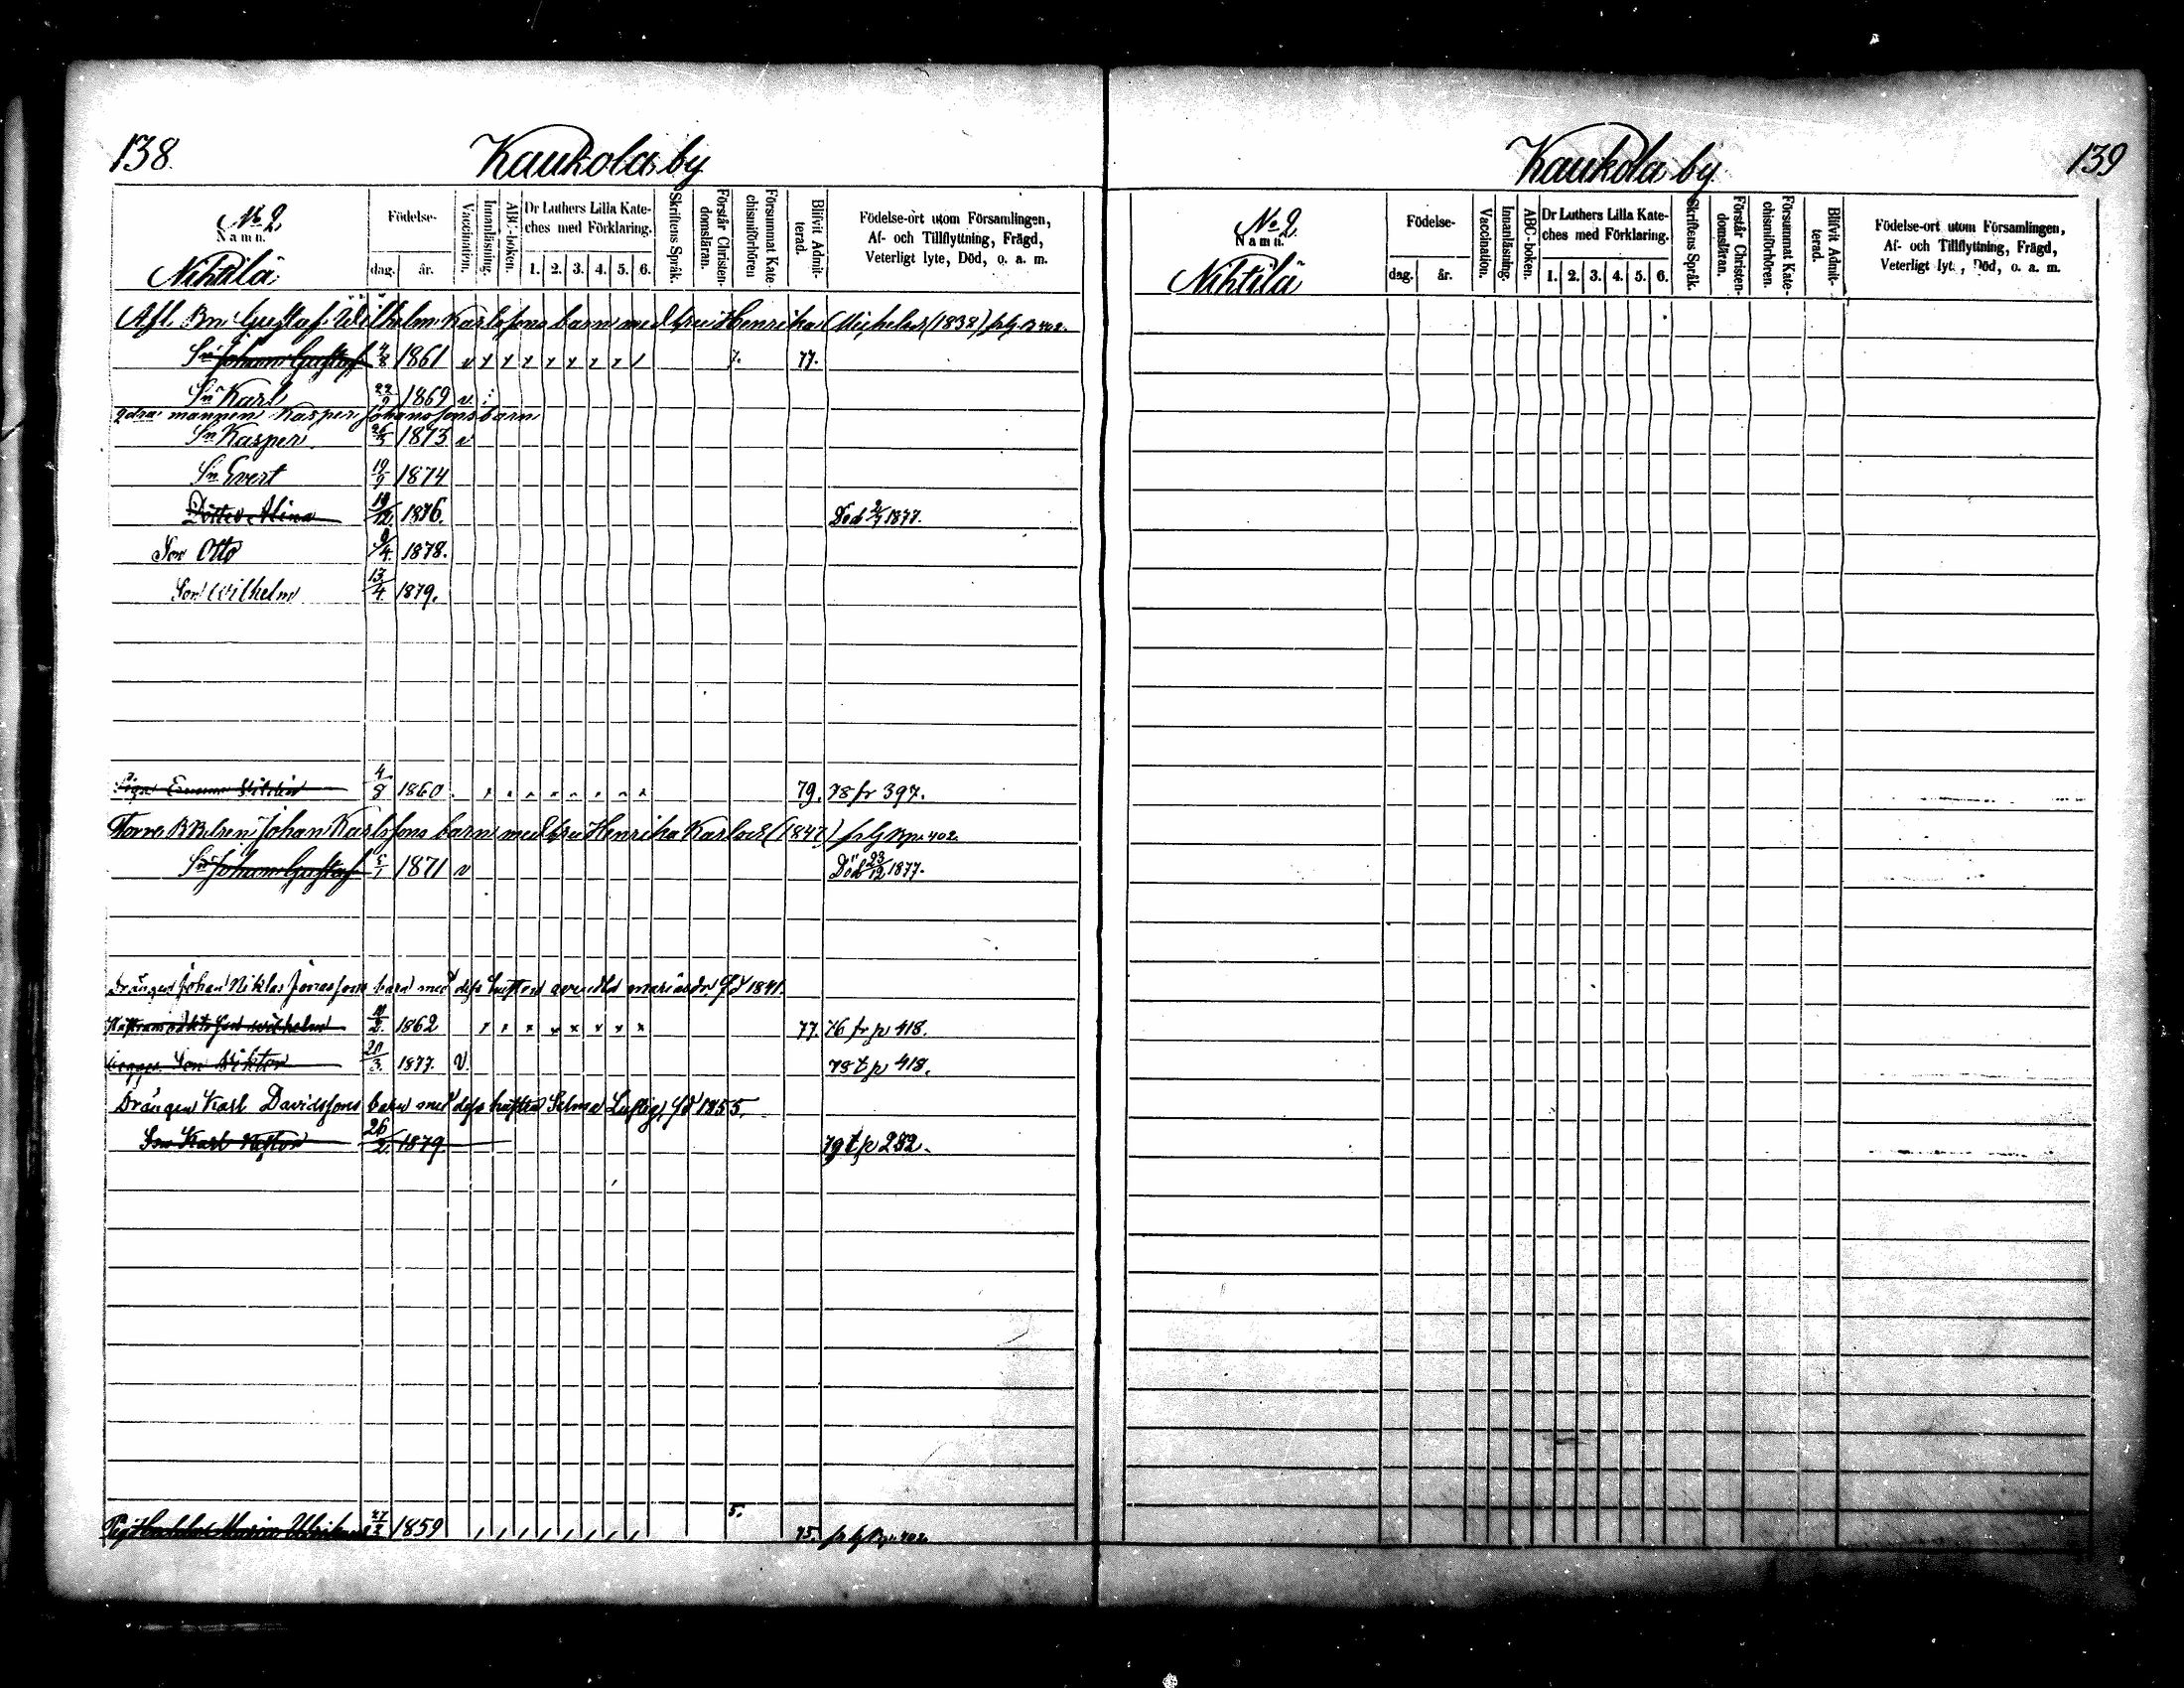 138. Kaukola by
No 2.
Namn.
Nihtilä
Födelse-
dag. år.
Vaccination.
Innanläsning.
ABC-boken.
Dr Luthers Lilla Kate-
ches med Förklaring.
1. 2. 3. 4. 5. 6.
Skriftens Språk.
Förstår Christen-
domsläran.
Försummat Kate
chismiförhören
Blifvit Admit-
terad.
Födelse-ort utom Församlingen,
Af- och Tillflyttning, Frägd,
Veterligt lyte, Död, o. a. m.
Afl. Bn Gustaf Wilhelm Karlssons barn med Hru Henrika (1838) 402.
Sn Johan Gustaf 4/8 1861 v x x x x x x x / 7. 77.
Sn Karl 22/9 1869 v
mannen Kasper Johanssons barn
Sn Kasper 26/3 1873 v
Sn Evert 19/9 1874
Dotter Alina 19/12 1876. Död 2/7 1877.
Son Otto 9/4. 1878.
Son Wilhelm 13/4. 1879.
Piga 4/8 1860 79. 78 fr 397.
Johan Karlssons barn med Hru Henrika Karlsd (1847) 402.
Sn Johan Gustaf 5/1 1871 v Död 23/12 1877.
Drängen Johan Niklas barn med dess hustru 1841.
Wilhelm 1862 77. 76 fr p 418.
Son Viktor 1877. V. 78 t p 418.
Drängen Karl Davidssons barn med dess hustru Selma Lustig, fd 1855.
Son Karl Nestor 26/2. 1879 79 t p 282.
Maria Ulrika 1859 5. 75. 402
Kaukola by 139
No 2.
Namn.
Nihtilä
Födelse-
dag. år.
Vaccination.
Innanläsning.
ABC-boken.
Dr Luthers Lilla Kate-
ches med Förklaring.
1. 2. 3. 4. 5. 6.
Skriftens Språk.
Förstår Christen-
domsläran.
Försummat Kate-
chismiförhören.
Blifvit Admit-
terad.
Födelse-ort utom Församlingen,
Af- och Tillflyttning, Frägd,
Veterligt lyt , Död, o. a. m.